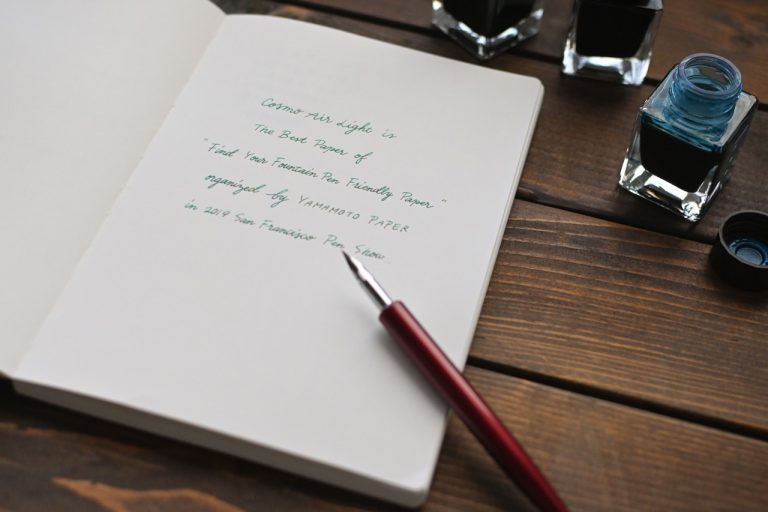 Cosmo Air Light is
The Best Paper of
"Find Your Fountain Pen Friendly Paper"
organized by YAMAMOTO PAPER
in 2019 San Francisco Pen Show.